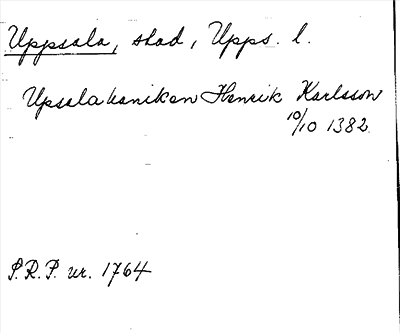 Uppsala, stad, Upps. l.
Upsalakaniken Henrik Karlsson
10/10 1382.
S.R.P. nr. 1764